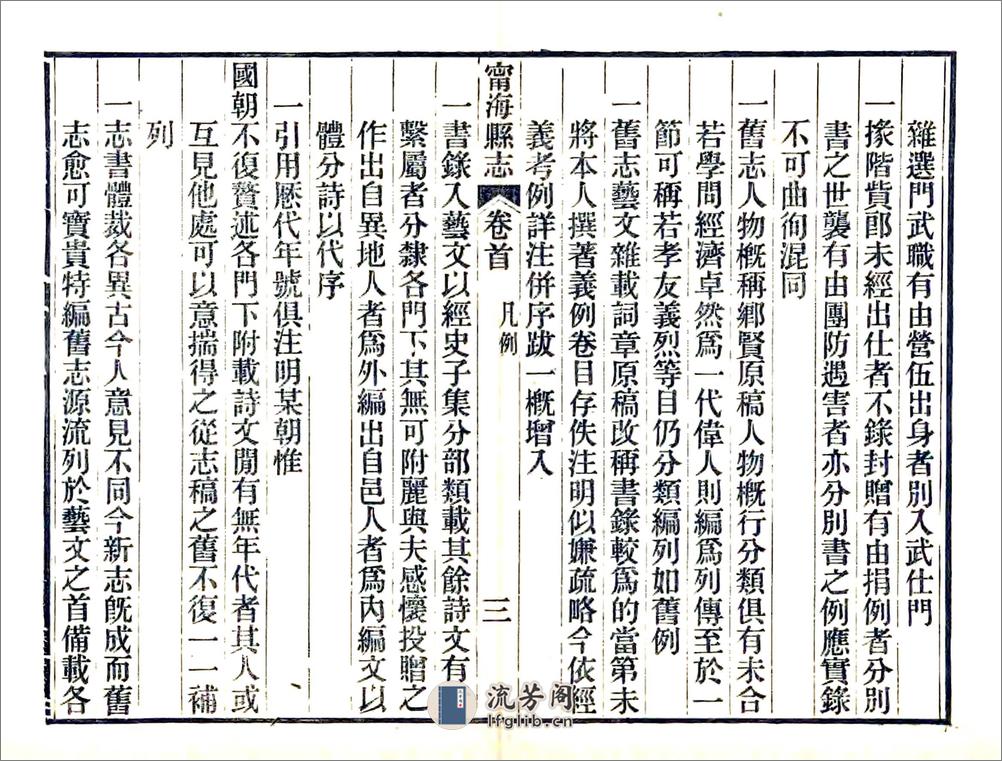 雜選門武職有由營伍出身者別入武仕門
一掾階貲郎未經出仕者不錄封贈有由捐例者分別
書之世襲有由團防遇害者亦分別書之例應實錄
不可曲徇混同
一舊志人物槪稱鄕賢原稿人物槪行分類俱有未合
若學問經濟卓然爲一代偉人則編爲列傳至於一
節可稱若孝友義烈等目仍分類編列如舊例
一舊志藝文雜載詞章原稿改稱書錄較爲的當第未
將本人撰著義例卷目存佚注明似嫌疏略今依經
義考例詳注併序跋一槪增入
甯海縣志 卷首 凡例 三
一書錄入藝文以經史子集分部類載其餘詩文有
繫屬者分隸各門下其無可附麗與夫感懷投贈之
作出自異地人者爲外編出自邑人者爲內編文以
體分詩以代序
一引用厯代年號俱注明某朝惟
國朝不復贅述各門下附載詩文閒有無年代者其人或
互見他處可以意揣得之從志稿之舊不復一一補
列
一志書體裁各異古今人意見不同今新志旣成而舊
志愈可寶貴特編舊志源流列於藝文之首備載各
流芳阁
lfglib.cn